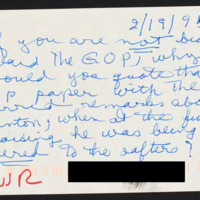 2/19/9
you are not bi
ard The G.O.P, why
ould you quote tha
P paper with the
rrid remarks abo
nton, when at the fu
aising he was being
ered to the rafters?
WR